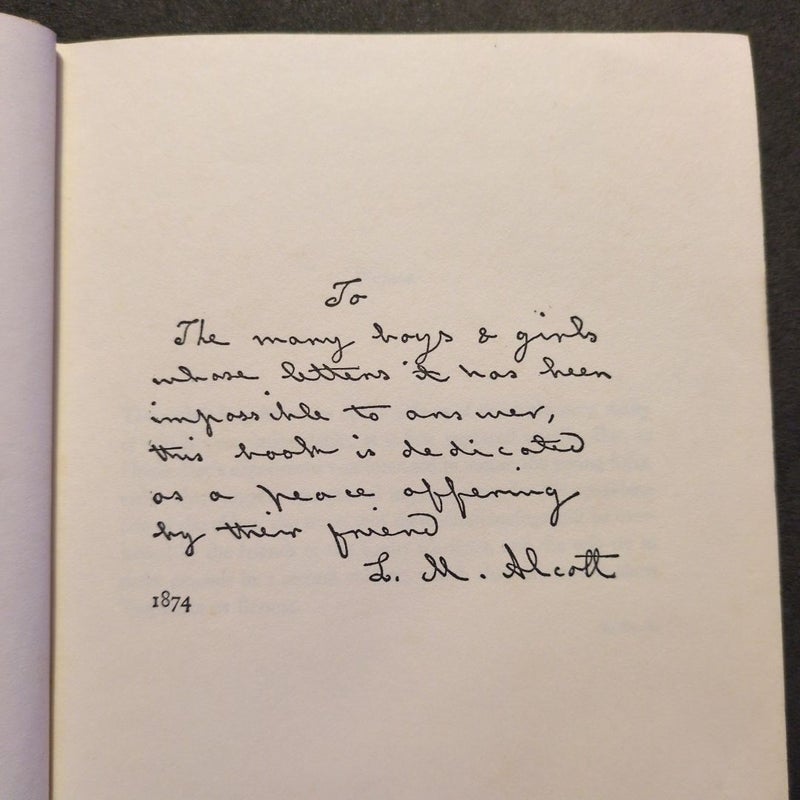 To
The many boys & girls
whose letters it has been
impossible to answer,
this book is dedicated
as a peace offering
by their friend
L. M. Alcott
1874